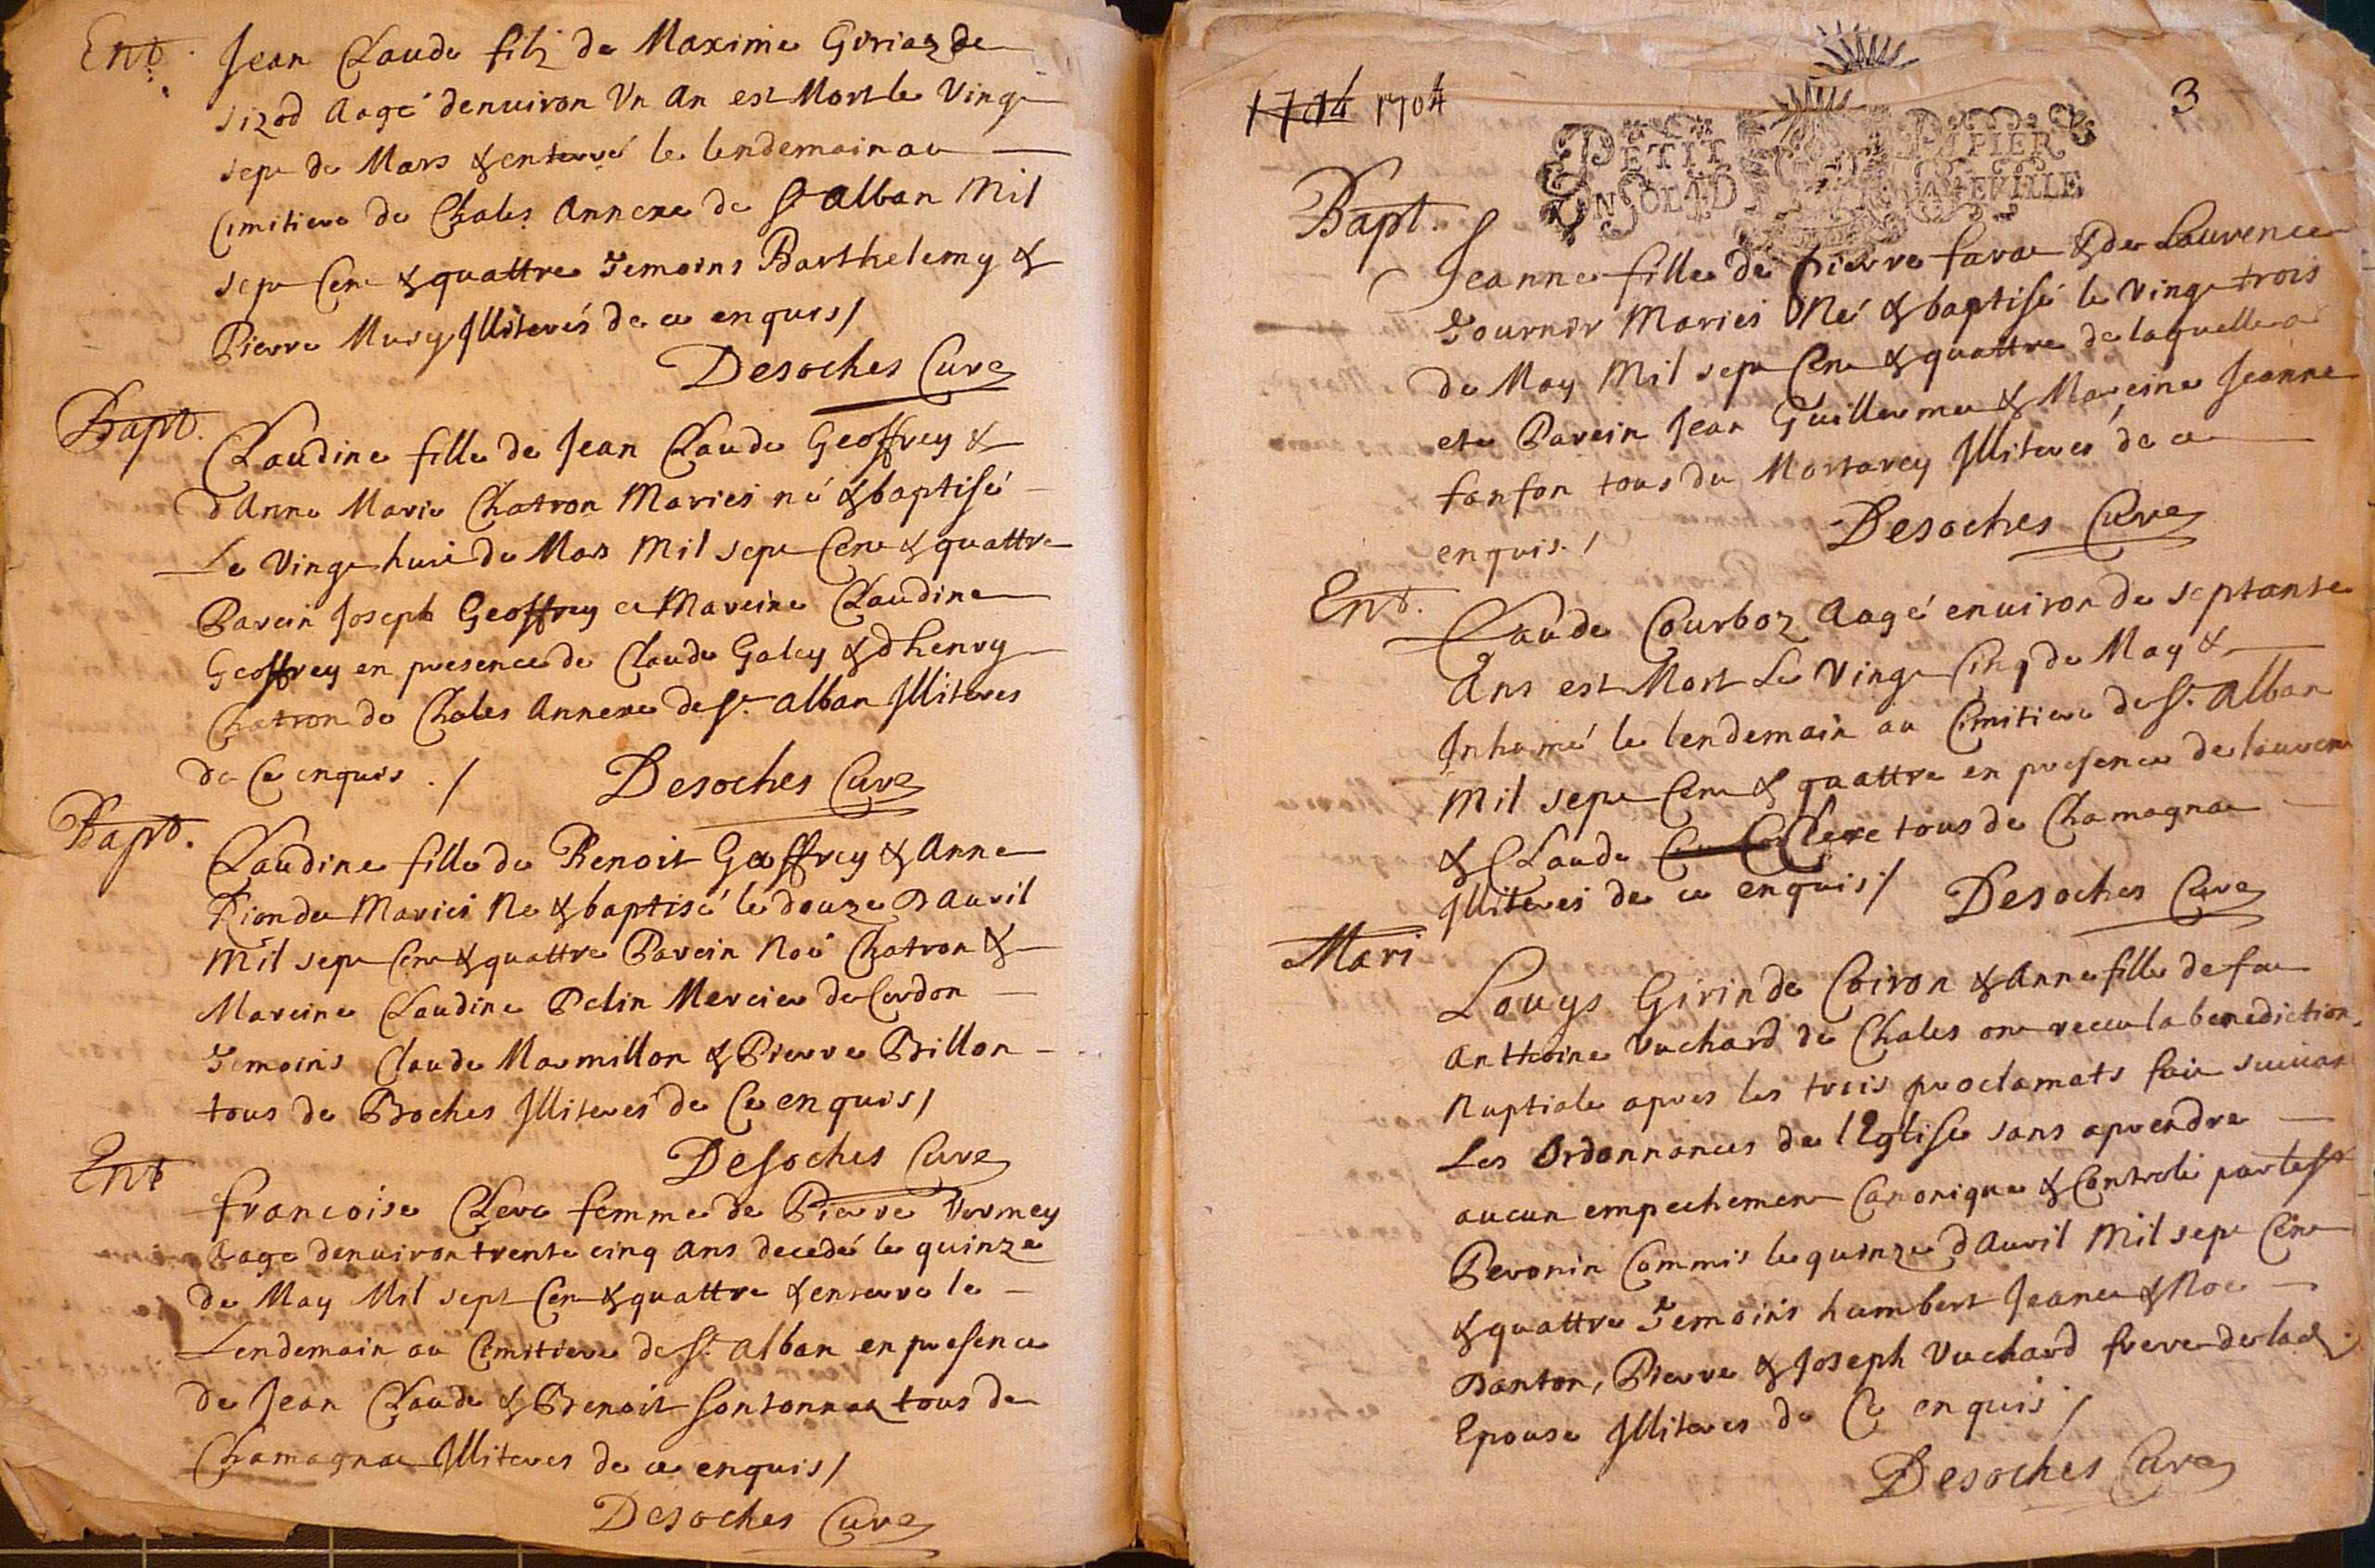 Ent. Jean Claude filz de Maxime Goriaz de
Sizod Aagé denuiron Vn An est Mort le Vingt
sept de Mars & enterré le lendemain au
Cimitiere de Chales Annexe de St alban Mil
sept Cent & quattre Temoins Barthelemy &
Pierre Musy Illiterés de ce enquis /
Desoches Curé
Bapt. Claudine fille de Jean Claude Geoffrey &
d'Anne Marie Chatron Mariés né & baptisé
Le Vingt huit de Mars Mil sept Cent & quattre
Parein Joseph Geoffrey et Mareine Claudine
Geoffrey en presence de Claude Galey & d'henry
Chatron de Chales Annexe de St alban Illiteres
de Ce enquis . /
Desoches Curé
Bapt. Claudine fille de Benoit Geoffrey & Anne
Rionde Mariés Ne & baptisé le douze D'Auril
Mil sept Cent & quattre Parein Noé Chatron &
Mareine Claudine Belin Mercier de Cerdon
Temoins Claude Marmillon & Pierre Billon
tous de Boches Illiterés de Ce enquis /
Desoches Curé
Ent francoise Clerc femme de Pierre Vermey
Aage denuiron trente cinq Ans decedé le quinze
de May Mil sept Cent & quattre & enterre le
Lendemain au Cimitiere de St alban en presence
de Jean Claude & Benoit Sontonnaz tous de
Chamagnac Illiteres de ce enquis /
Desoches Curé
1714 1704
3
PETIT PAPIER
UN SOL 4 D LA FEVILLE
Bapt. Jeanne fille de pierre favre & de Laurence
Tournier Mariés Né & baptisé le Vingt trois
de May Mil sept Cent & quattre de laquelle a
ete Parein Jean Guillerme & Mareine Jeanne
fanfon tous du Mortarey Illiterés de ce
enquis. /
Desoches Curé
Ent. Claude Courboz Aagé enuiron de septante
Ans est Mort Le Vingt Cinq de May &
Inhumé le lendemain au Cimitiere de St. Alban
Mil sept Cent & quattre en presence de laurent
& Claude Clerc tous de Chamagnac
Illiterés de ce enquis /
Desoches Curé
Mari Louys Girin de Coiron & Anne fille de feu
Anthoine Vuchard de Chales ont receu la benediction
Nuptiale apres les trois proclamats fait suiuant
Les Ordonnances de l'Eglise sans aprendre
aucun empechement Canonique & Controlé par le Sr
Peronin Commis le quinze d'Auril Mil sept Cent
& quattre Temoins humbert Jeane & Noe
Danton, Pierre & Joseph Vuchard frere de lad.
Epouse Illiteres de Ce enquis /
Desoches Curé